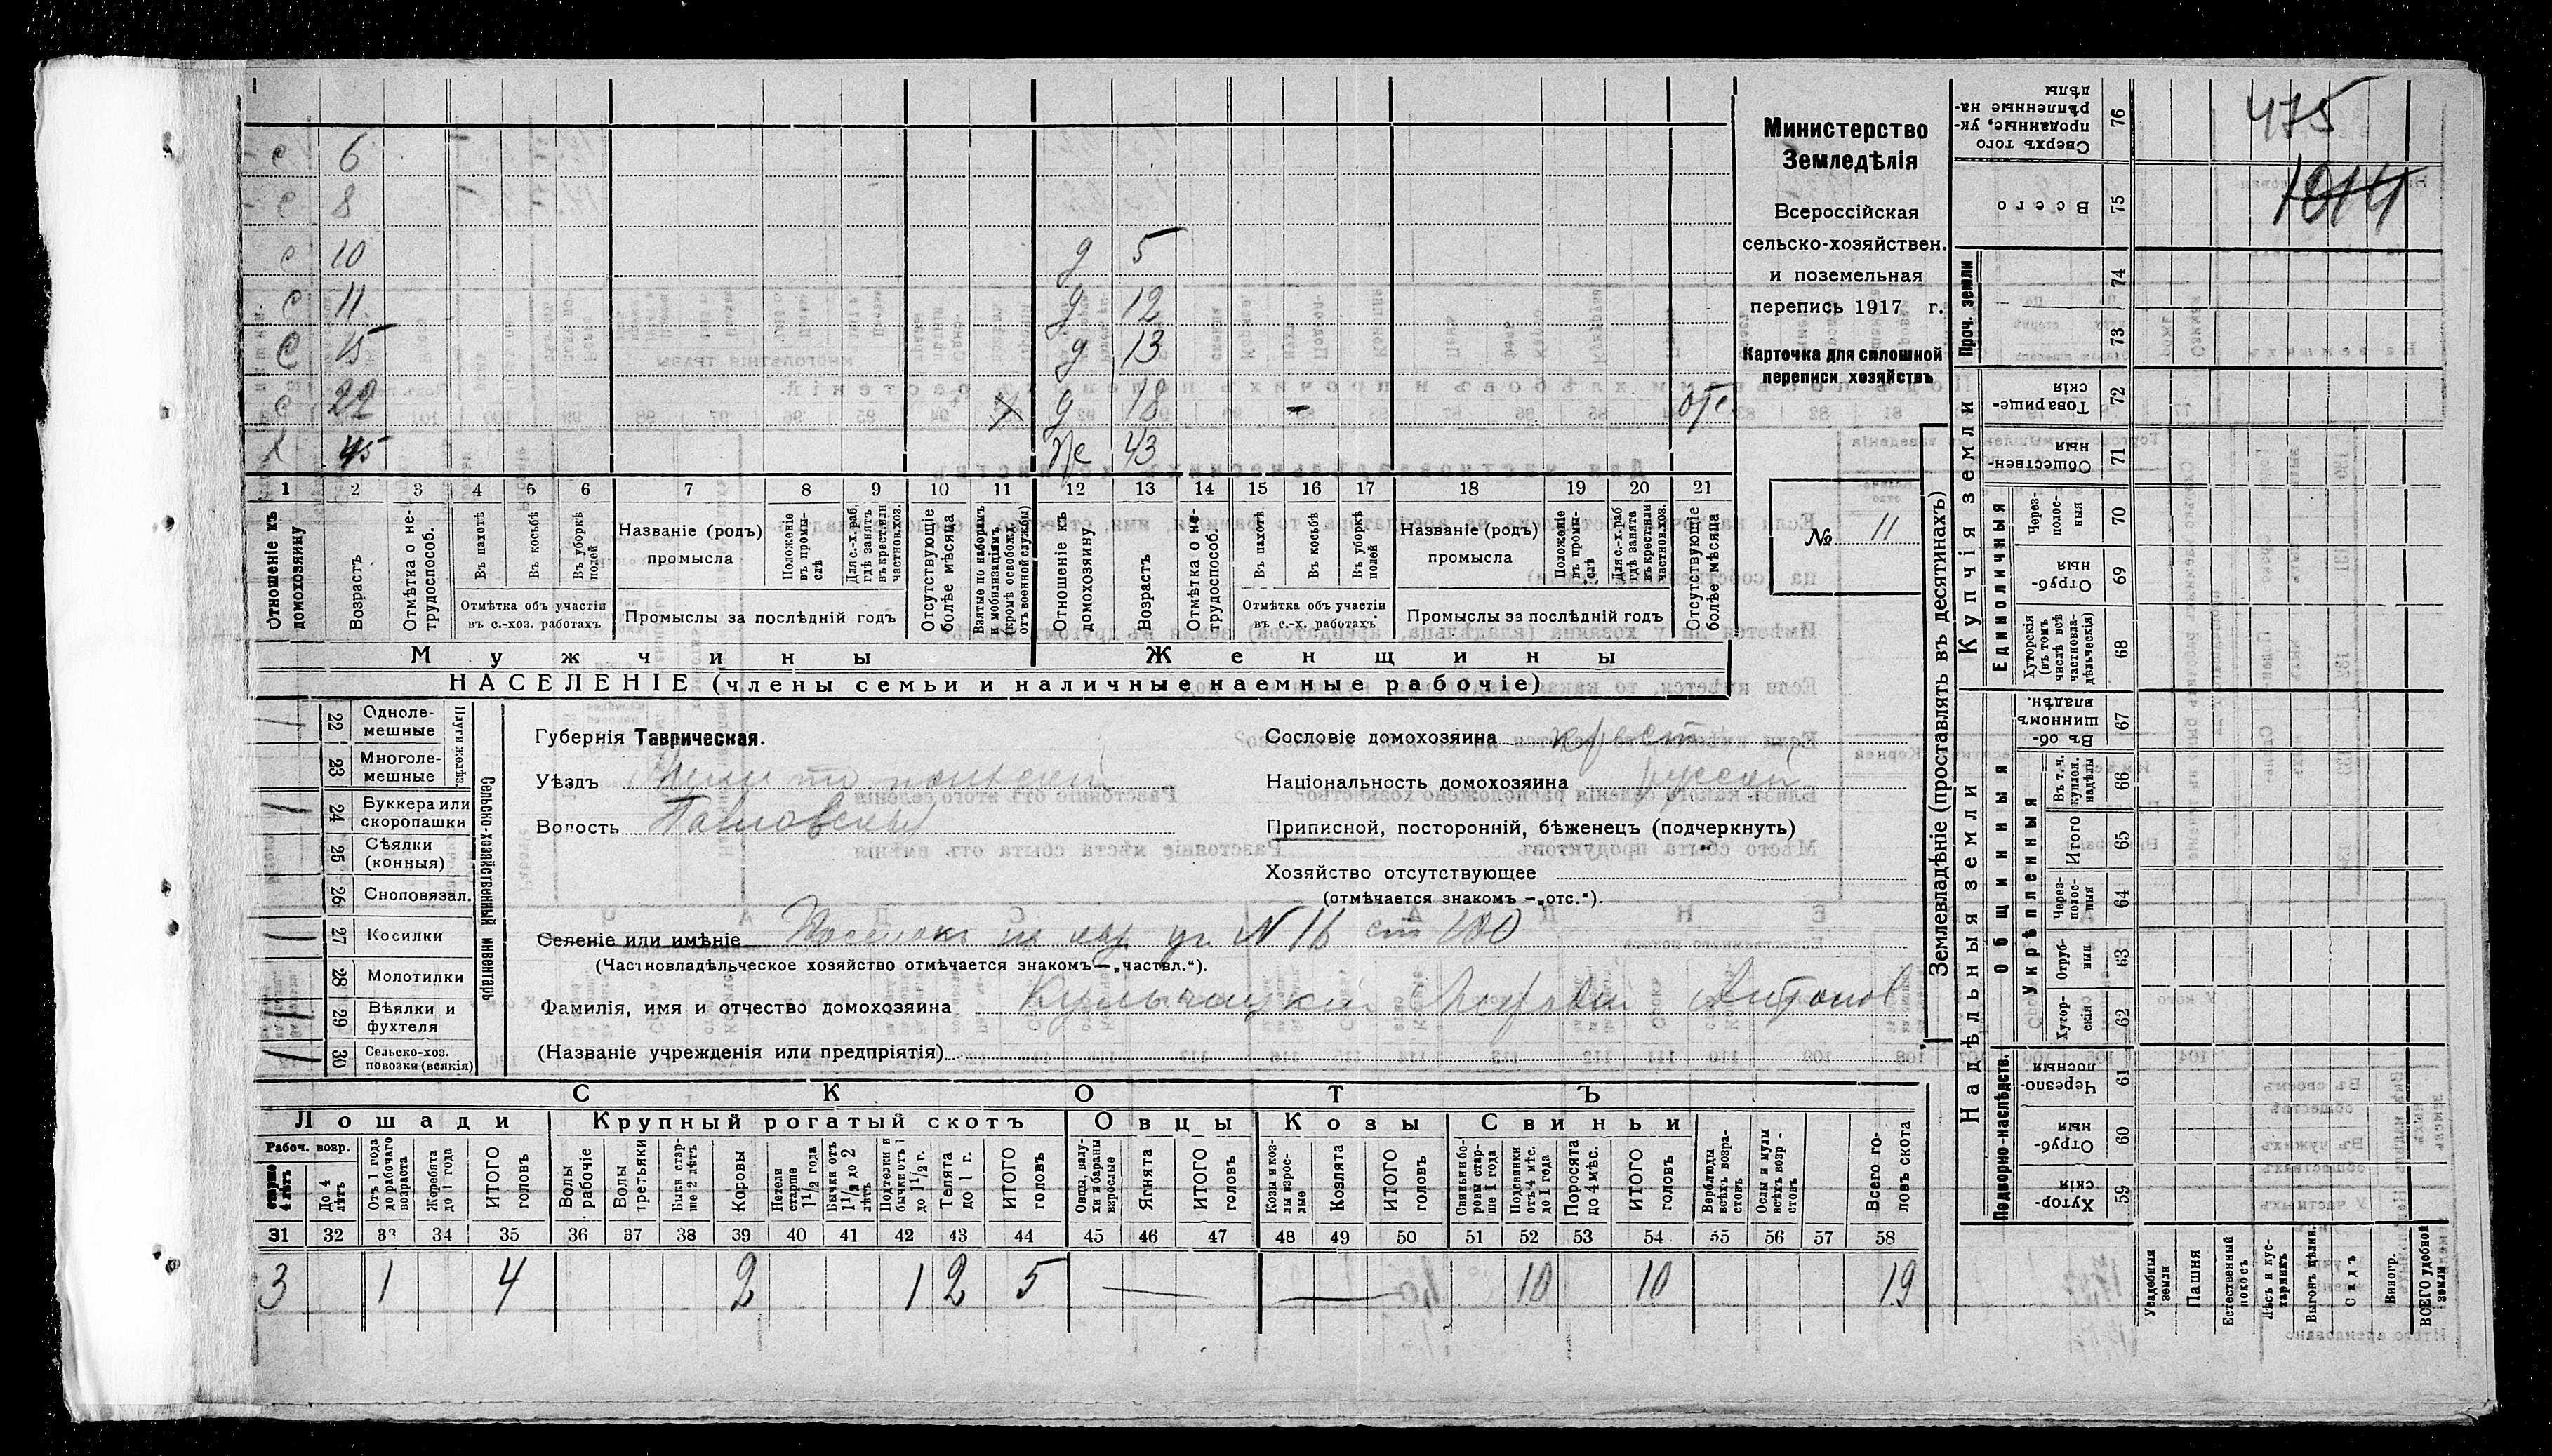 475
1014
Министерство
Земледѣлія
Всероссійская
сельско-хозяйствен.
и поземельная
перепись 1917 г.
Карточка для сплошной
переписи хозяйствъ
№ 11
с 6
с 8
с 10 д 5
с 11 д 12
с 15 д 13
с 22 д 18 - отс
х 45 же 43
1 2 3 4 5 6 7 8 9 10 11 12 13 14 15 16 17 18 19 20 21
Отношеніе къ домохозяину
Возрастъ
Отмѣтка о не-трудоспособ.
Въ пахотѣ
Въ косьбѣ
Въ уборкѣ полей
Отмѣтка объ участіи въ с.-хоз. работахъ
Названіе (родъ) промысла
Положеніе въ промы-слѣ
Для с.-х. раб. гдѣ занятъ въ крест. или частновл. хоз.
Промыслы за послѣдній годъ
Отсутствующіе болѣе мѣсяца
Взятые по наборамъ и мобилизаціямъ (кромѣ освобожд. отъ военной службы)
Отношеніе къ домохозяину.
Возрастъ
Отмѣтка о не-трудоспособ.
Въ пахотѣ
Въ косьбѣ
Въ уборкѣ полей
Отмѣтка объ участіи въ с.-х. работахъ
Названіе (родъ) промысла
Положеніе въ промы-слѣ
Для с.-х. раб гдѣ занята въ крест. или частновл. хоз.
Промыслы за послѣдній годъ
Отсутствующіе болѣе мѣсяца
Мужчины Женщины
НАСЕЛЕНІЕ (члены семьи и наличные наемные рабочіе)
Сельско-хозяйственный инвентарь
Плуги желѣз.
22 Одноле-мешные
23 Многоле-мешные
24 Буккера или скоропашки
25 Сѣялки (конныя)
26 Сноповязал.
27 Косилки
28 Молотилки
29 Вѣялки и фухтеля
30 Сельско-хоз. повозки (всякія)
Губернія Таврическая.
Уѣздъ Мелитопольскій
Волость Павловская
Сословіе домохозяина крест
Національность домохозяина русскій
Приписной, посторонній, бѣженецъ (подчеркнуть)
Хозяйство отсутствующее
(отмѣчается знакомъ —„отс.“).
Селеніе или имѣніе Поселокъ на уч. N 16 ст 100
(Частновладѣльческое хозяйство отмѣчается знакомъ—„частвл.“).
Фамилія, имя и отчество домохозяина Антонов
(Названіе учрежденія или предпріятія)
СКОТЪ
Лошади Крупный рогатый скотъ Овцы Козы Свиньи
Рабоч. возр.
старше 4 лѣтъ
До 4 лѣтъ
Отъ 1 года до рабочаго возраста
Жеребята до 1 года
ИТОГО головъ
Волы рабочіе
Волы третьяки
Быки стар-ше 2 лѣтъ
Коровы
Нетели старше 1 1/2 года
Бычки отъ 1 1/2 до 2 лѣтъ
Подтелки и бычки отъ 1 до 1 1/2 г.
Телята до 1 г.
ИТОГО головъ
Овцы, валу-хи и бараны взрослые
Ягнята
ИТОГО головъ
Козы и коз-лы взрос-лые
Козлята
ИТОГО головъ
Свиньи и бо-ровы стар-ше 1 года
Подсвинки отъ 4 мѣс. до 1 года
Поросята до 4 мѣс.
ИТОГО головъ
Верблюды всѣхъ возра-стовъ
Ослы и мулы всѣхъ возр-стовъ
Всего го-ловъ скота
31 32 33 34 35 36 37 38 39 40 41 42 43 44 45 46 47 48 49 50 51 52 53 54 55 56 57 58
3 1 4 2 1 2 5 — — 10 10 19
Землевладѣніе (проставлять въ десятинахъ)
Купчія земли
Надѣльныя земли
76 Сверхъ того проданные, ук-рѣпленные на-дѣлы
75 Всего
Проч. земли
74
73
72 Товарище-скія
71 Обществен-ныя
Единоличныя
70 Через-полос-ныя
69 Отруб-ныя
68 Хуторскія (въ томъ числѣ всѣ частновла-дѣльческія)
Общинныя
67 Въ об-щинномъ владѣн.
Укрѣпленныя
66 Въ т. ч. куплен. надѣлы
65 Итого
64 Через-полос-ныя
63 Отруб-ныя
62 Хутор-скія
Подворно-наслѣдств.
61 Черезпо-лосныя
60 Отруб-ныя
59 Хутор-скія
Усадебныя земли
Пашня
Естественный покосъ
Лѣсъ и кус-тарникъ
Выгонъ цѣлин.
Садъ
Виногр.
ВСЕГО удобной земли